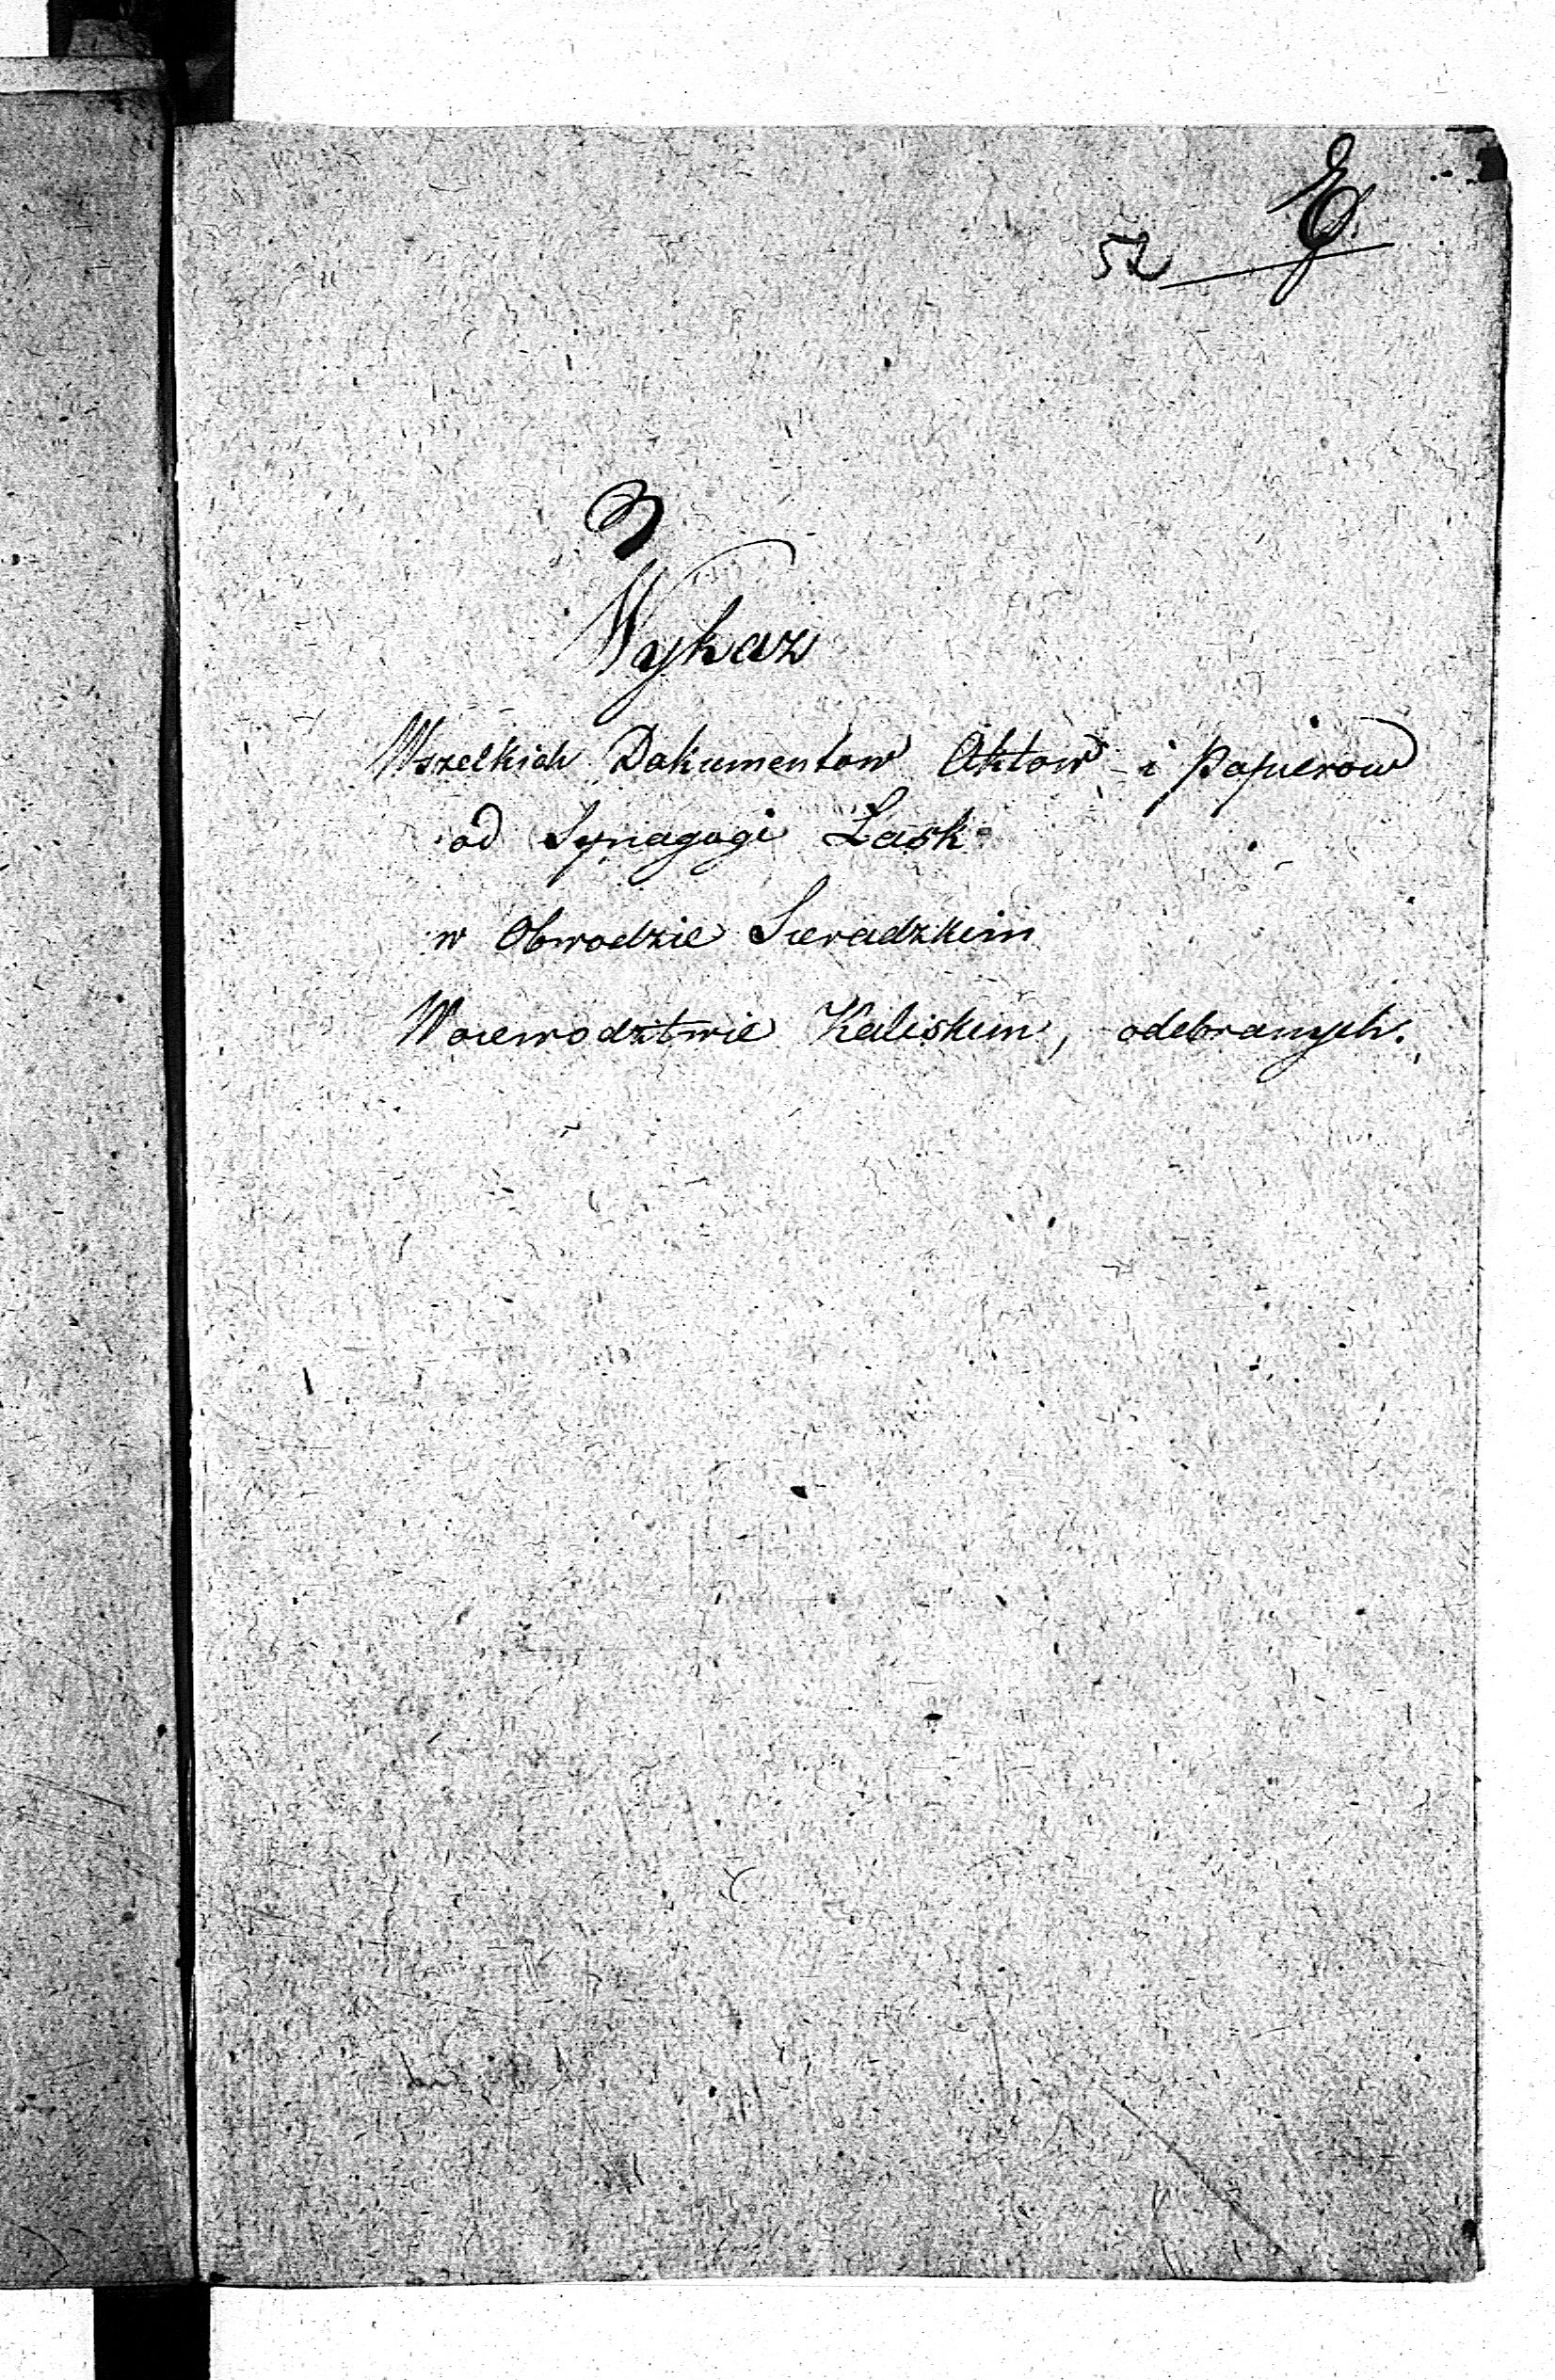 E.
52
Wykaz
Wszelkich Dokumentow Aktow i Papierow
od Synagogi Łask
w Obwodzie Sieradzkim
Woiewodztwie Kaliskim, odebranych.